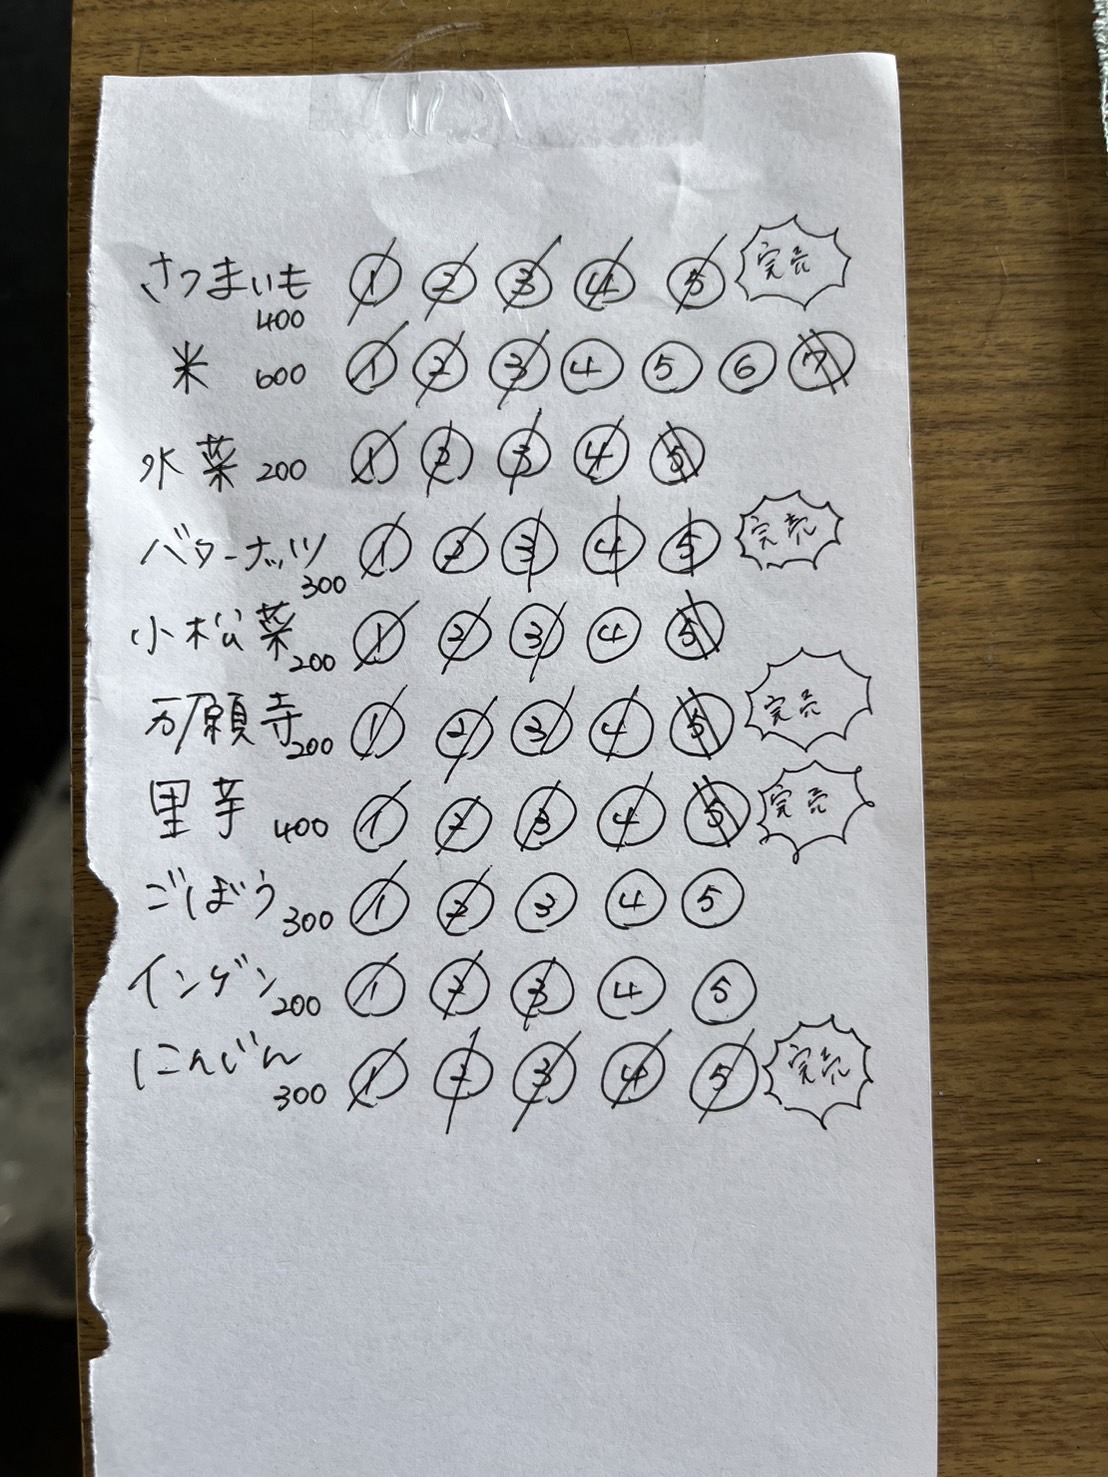 さつまいも 400 ① ② ③ ④ ⑤ 完売
米 600 ① ② ③ ④ ⑤ ⑥ ⑦
水菜 200 ① ② ③ ④ ⑤
バターナッツ 300 ① ② ③ ④ ⑤ 完売
小松菜 200 ① ② ③ ④ ⑤
万願寺 200 ① ② ③ ④ ⑤ 完売
里芋 400 ① ② ③ ④ ⑤ 完売
ごぼう 300 ① ② ③ ④ ⑤
インゲン 200 ① ② ③ ④ ⑤
にんじん 300 ① ② ③ ④ ⑤ 完売